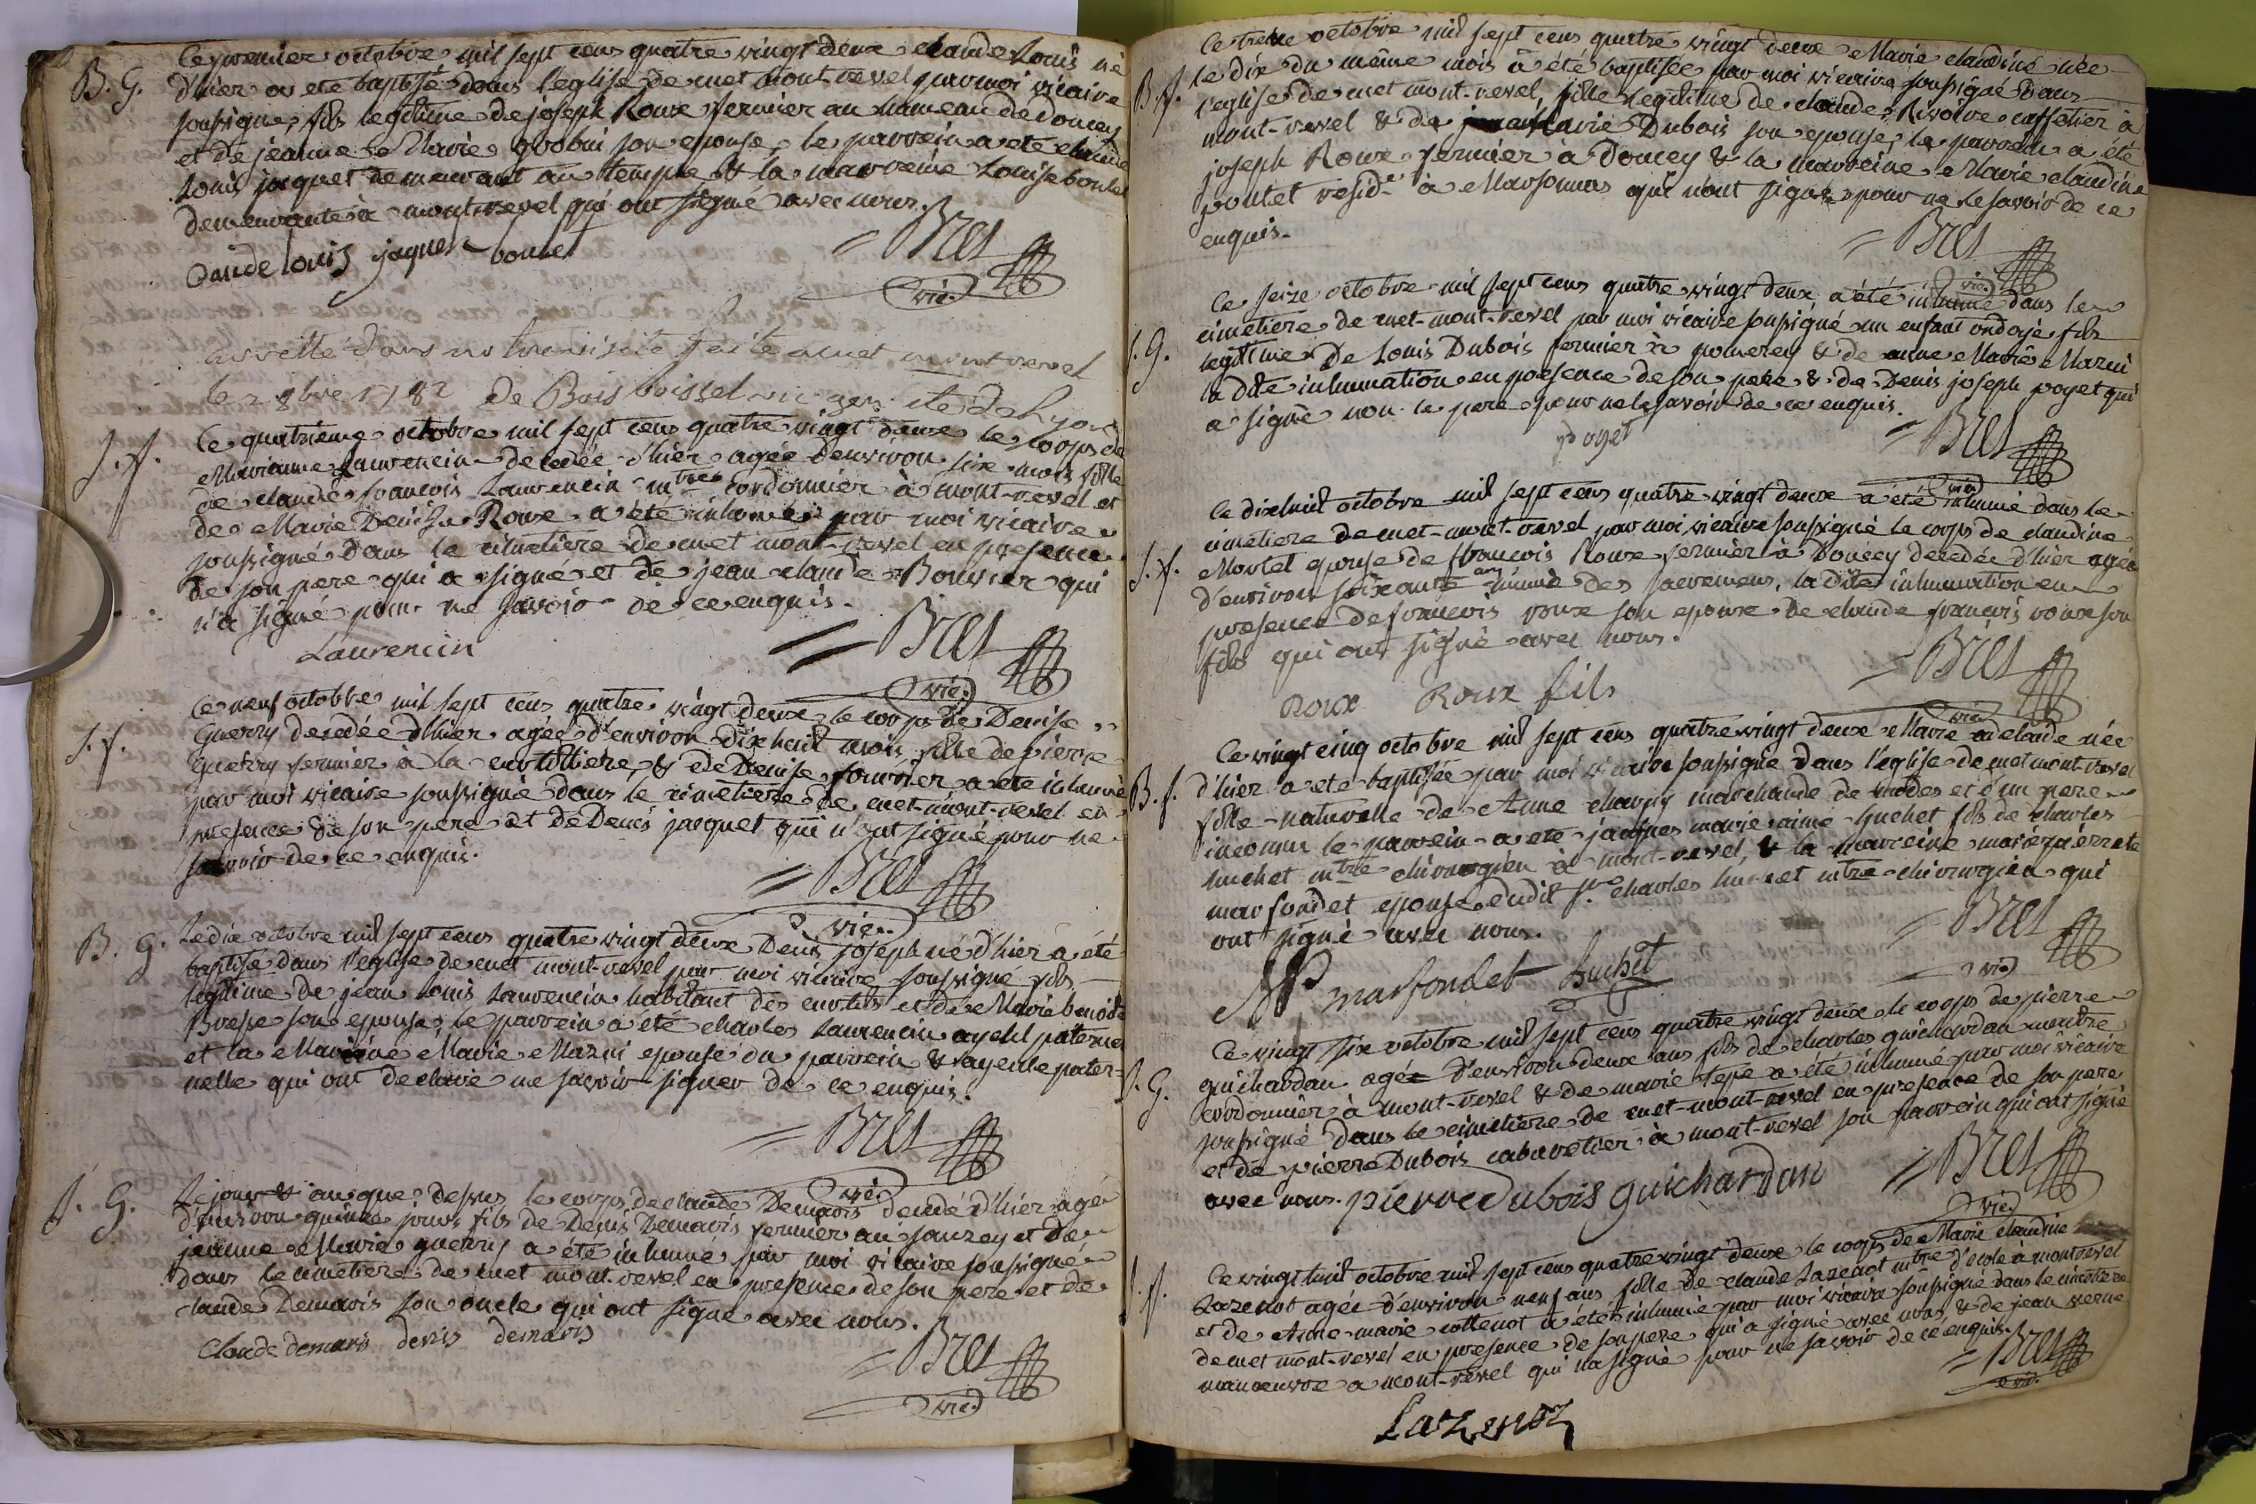 B. G.
Ce premier octobre mil sept cens quatre vingt deux claude Louis né
d'hier a eté baptisé dans l'eglise de cuet mont-revel par moi vicaire
soussigné, fils legitime de joseph Roux fermier au hameau de Doucey
et de jeanne Marie gobui son epouse, le parrein a eté claude
Louis jaquet demeurant au temple & la marreine Louise bonlet
demeurante à mont-revel qui ont signé avec nous.
Claude louis jaquet bonlet
= Bret
vic.
arretté dans notre visite faite a cuet mont revel
le 2 8bre 1782 De Bois boissel vic. gen. de Lyon
S. f.
Ce quatrieme octobre mil sept cens quatre vingt deux le corps de
Marianne Laurencin decedée d'hier agée d'environ six mois fille
de claude francois Laurencin mtre cordonnier à mont-revel et
de Marie Denise Roux a été inhumée par moi vicaire
soussigné dans le cimetiere de cuet mont-revel en presence
de son pere qui a signé et de jean claude Bouvier qui
n'a signé pour ne savoir de ce enquis.
Laurencin
= Bret
vic.
S. f.
Ce neuf octobre mil sept cens quatre vingt deux le corps de Denise
Guerry decedée d'hier agée d'environ dix huit mois fille de pierre
Guerry fermier à la curtilliere & de Denise fournier a eté inhumé
par moi vicaire soussigné dans le cimetiere de cuet-mont-revel en
presence de son pere et de Denis jaquet qui n'ont signé pour ne
savoir de ce enquis.
= Bret
vic.
B. G.
Le dix octobre mil sept cens quatre vingt deux Denis joseph né d'hier a été
baptisé dans l'eglise de cuet mont-revel par moi vicaire soussigné fils
legitime de jean Louis Laurencin habitant des curtils et de Marie benoite
Bresse son epouse, le parrein a été charles Laurencin ayeul paternel
et la Marreine Marie Mazui epouse du parrein & ayeule pater-
nelle qui ont declaré ne savoir signer de ce enquis.
= Bret
vic.
S. G.
Le jour & an que dessus le corps de claude Demaris decedé d'hier agé
d'environ quinze jours fils de Denis Demaris fermier au sauzey et de
jeanne Marie guerry a été inhumé par moi vicaire soussigné
dans le cimetiere de cuet mont-revel en presence de son pere et de
claude Demaris son oncle qui ont signé avec nous.
Claude demaris denis demaris
= Bret
vic.
B. f.
Ce treize octobre mil sept cens quatre vingt deux Marie claudine née
le dix du même mois à été baptisée par moi vicaire soussigné dans
l'eglise de cuet mont-revel, fille legitime de claude Revoire caffetier à
mont-revel & de Marie Dubois son epouse, le parrein a été
joseph Roux fermier à Doucey & la marreine Marie claudine
pontet resid.te à Marsonnas qui n'ont signé pour ne le savoir de ce
enquis.
= Bret
vic.
S. G.
Ce seize octobre mil sept cens quatre vingt deux a été inhumé dans le
cimetiere de cuet-mont-revel par moi vicaire soussigné un enfant ondoyé fils
legitime de Louis Dubois fermier à pomerey & de anne Marie Mazui
la dite inhumation en presence de son pere & de Denis joseph poyet qui
a signé non le pere pour ne le savoir de ce enquis.
poyet
= Bret
vic.
S. f.
Ce dixhuit octobre mil sept cens quatre vingt deux a été inhumé dans le
cimetiere de cuet-mont-revel par moi vicaire soussigné le corps de claudine
Morlet epouse de francois Roux fermier à Doucey decedée d'hier agée
d'environ soixante ans munie des sacremens, la dite inhumation en
presence de francois roux son epoux de claude francois roux son
fils qui ont signé avec nous.
Roux Roux fils
= Bret
vic.
B. f.
Ce vingt cinq octobre mil sept cens quatre vingt deux Marie adelaide née
d'hier a eté baptisée par moi vicaire soussigné dans l'eglise de cuet mont-revel
fille naturelle de Anne charpy marchande de modes et d'un pere
inconnu le parrein a eté jaques marie aimé huchet fils de charles
huchet mtre chirurgien à mont-revel, & la marreine marie pierrete
marfondet epouse dudit sr charles huchet mtre chirurgien qui
ont signé avec nous.
MP marfondet huchet
= Bret
vic.
S. G.
Ce vingt six octobre mil sept cens quatre vingt deux le corps de pierre
guichardan agé d'environ deux ans fils de charles guichardan maitre
cordonnier à mont-revel & de marie a été inhumé par moi vicaire
soussigné dans le cimetiere de cuet-mont-revel en presence de son pere
et de pierre Dubois cabaretier à mont-revel son parrein qui ont signé
avec nous. pierre dubois guichardan
= Bret
vic.
S. f.
Ce vingt huit octobre mil sept cens quatre vingt deux le corps de Marie claudine
Lazenot agée d'environ neuf ans fille de claude Lazenot mtre d'ecole à montrevel
et de Anne-marie cottenot a été inhumée par moi vicaire soussigné dans le cimetiere
de cuet mont-revel en presence de son pere qui a signé avec nous & de jean verne
manoeuvre a mont-revel qui n'a signé pour ne savoir de ce enquis.
= Bret
vic.
Lazenot